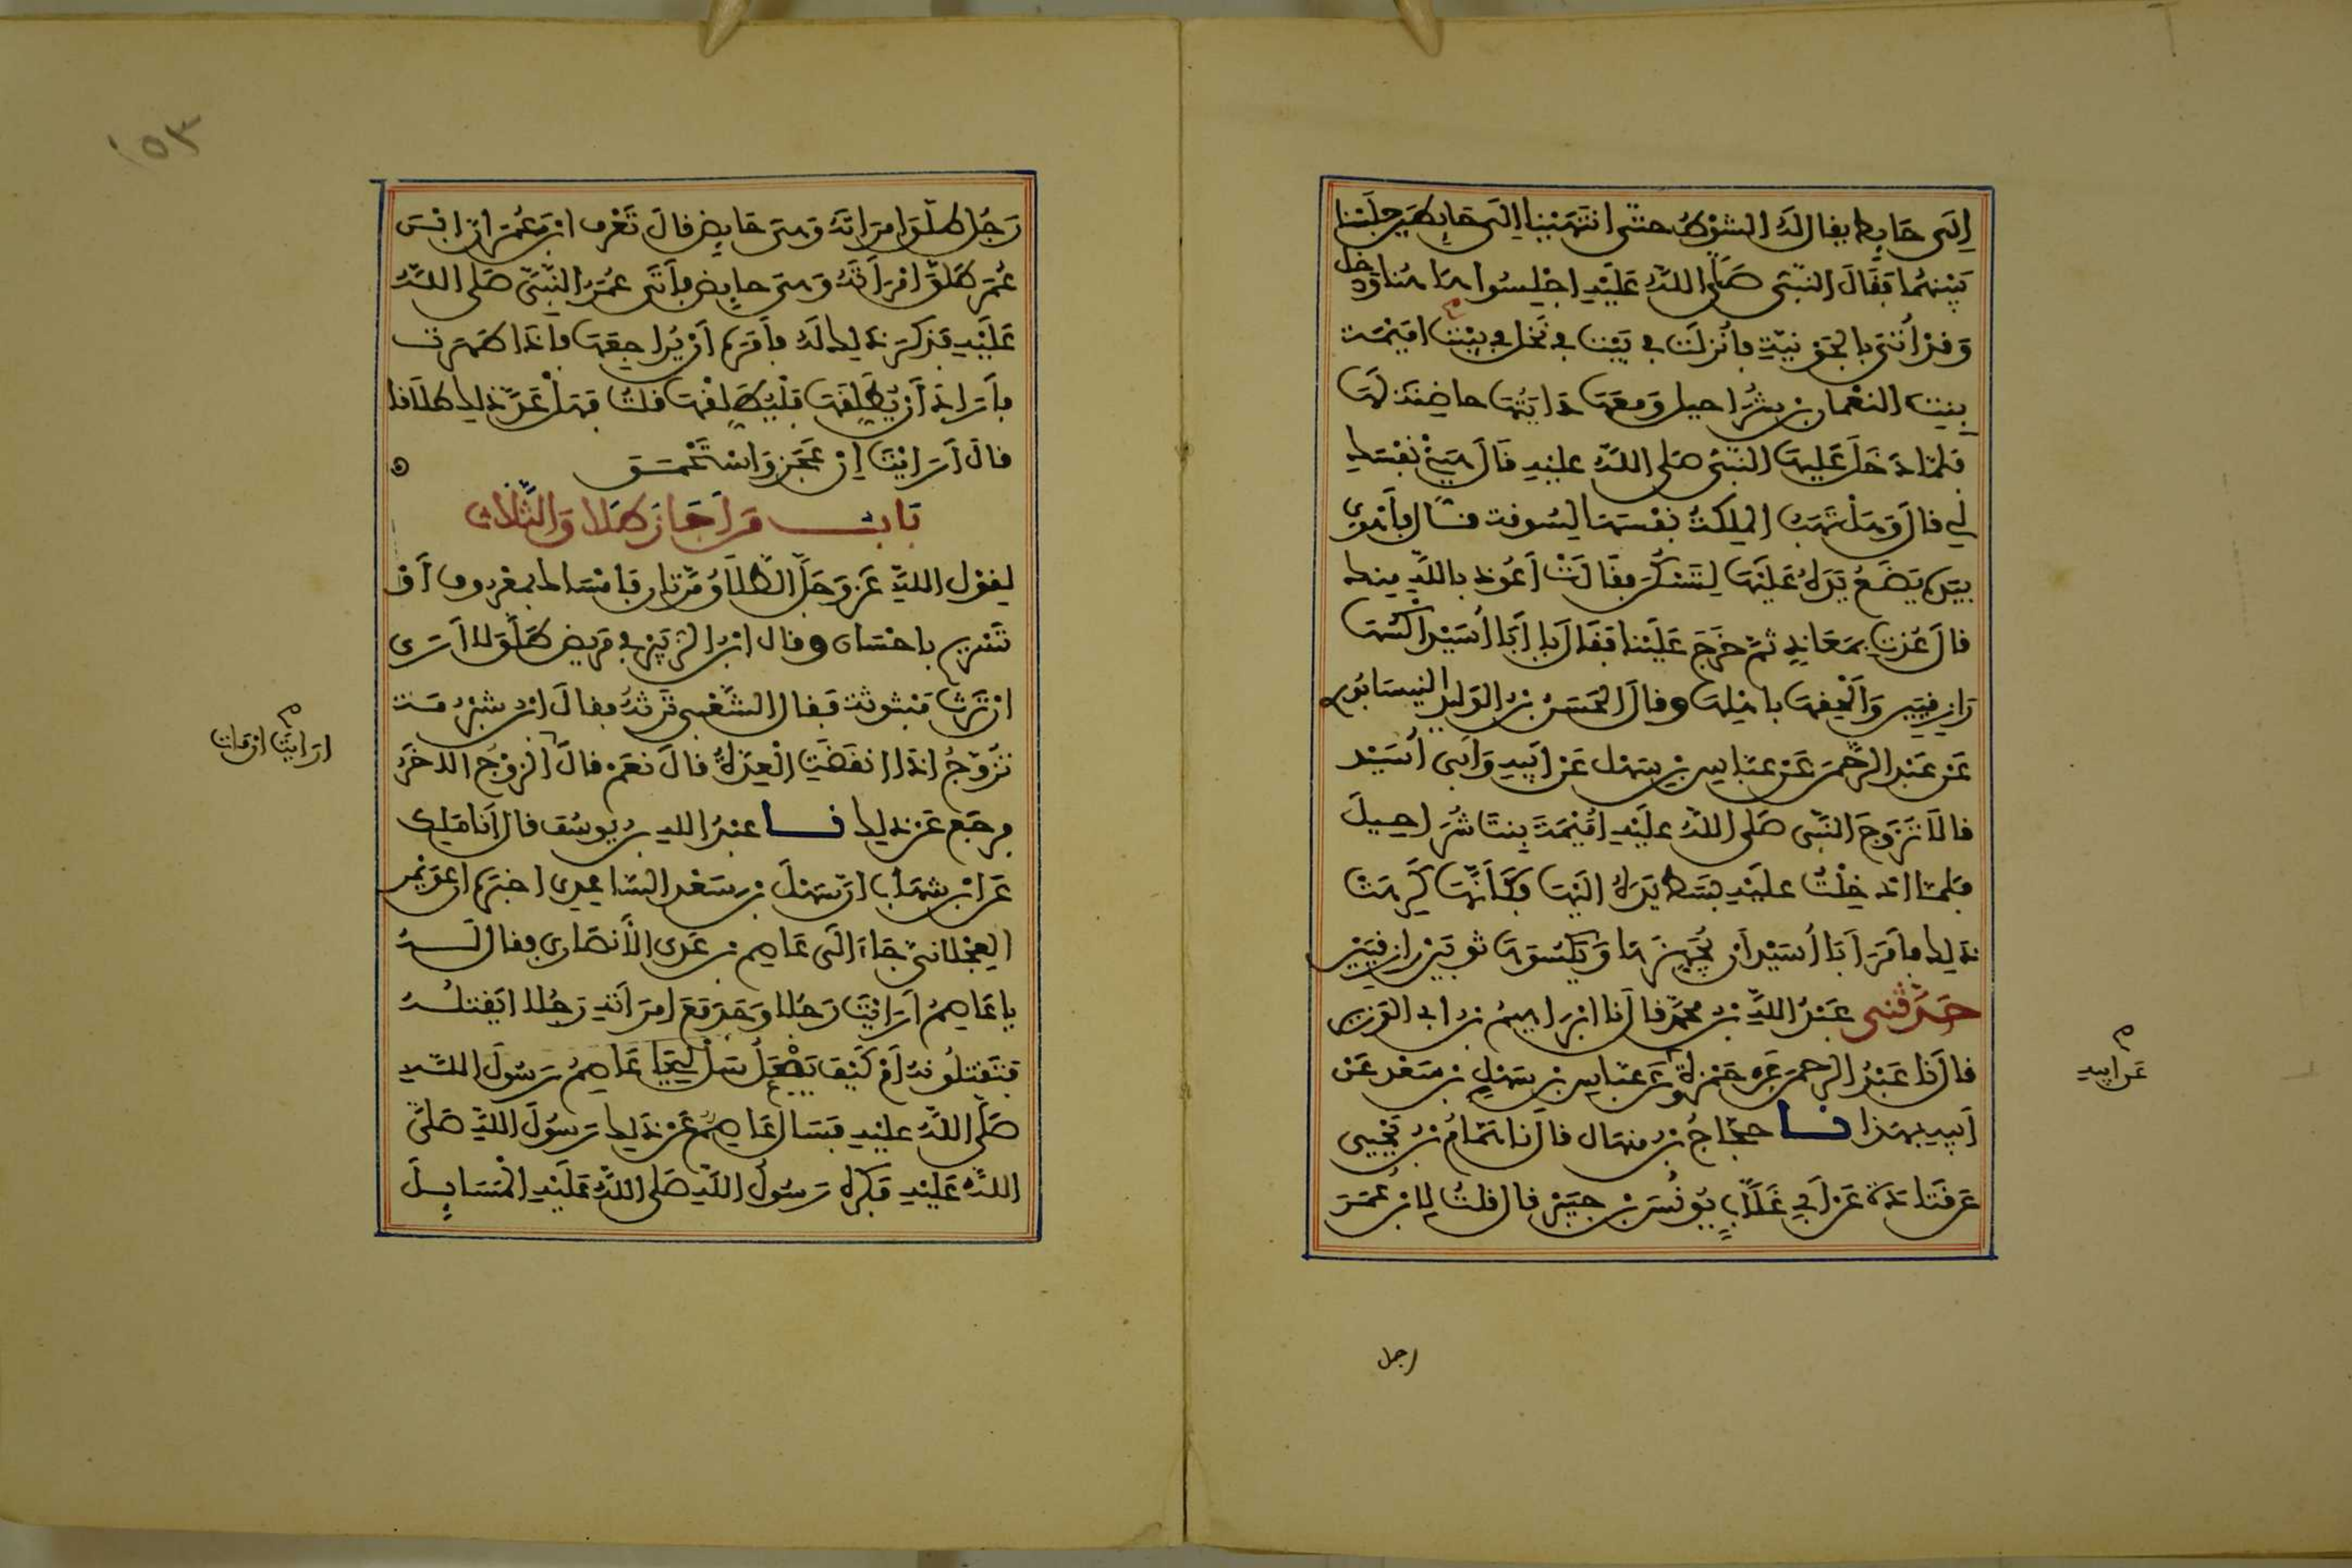 إلى حايط يقال له الشوط حتى انتهينا إلى حايطين جلسنا
بينهما فقال النبي صلى الله عليه اجلسوا ها هنا ودخل
وقد أتي بالجونية فأنزلت في بيت في نخل في بيت اميمة
بنت النعمان بن شراحيل ومعها دايتها حاضنة لها
فلما دخل عليها النبي صلى الله عليه قال هبي نفسك
لي قال وهل تهب الملكة نفسها للسوقة قال فأهوى
بيده يضع يده عليها لتسكن فقالت أعوذ بالله منك
قال عذت بمعاذ ثم خرج علينا فقال يا أبا أسيد اكسها
رازقيين والحقها باهلها وقال الحسين بن الوليد النيسابوري
عن عبد الرحمن عن عباس بن سهل عن أبيه وأبي أسيد
قالا تزوج النبي صلى الله عليه أميمة بنت شراحيل
فلما ادخلت عليه بسط يده اليها فكأنها كرهت
ذلك فأمر أبا أسيد أن يجهزها ويكسوها ثوبين رازقيين
حدثني عبد الله بن محمد قال نا ابراهيم بن ابي الوزير
قال نا عبد الرحمن عن حمزة وعن عباس بن سهل بن سعد عن
عن ابيه
أبيه بهذا نا حجاج بن منهال قال نا همام بن يحيى
عن قتادة عن أبي غلاب يونس بن جبير قال قلت لابن عمر
رجل
١٥٣
رجل طلق امراته وهي حايض قال تعرف ابن عمر ان ابن
عمر طلق امرأته وهي حايض فأتى عمر النبي صلى الله
عليه فذكر ذلك له فأمره أن يراجعها فاذا طهرت
فأراد أن يطلقها فليطلقها قلت فهل عد ذلك طلاقا
قال أرايت إن عجز واستحمق
باب من اجاز طلاق الثلاث
لقول الله عز وجل الطلاق مرتان فامساك بمعروف أو
تسريح باحسان وقال ابن الزبير في مريض طلق لا أرى
ان ترث مبتوتة فقال الشعبي ترثه فقال ابن شبرمة
تزوج اذا انقضت العدة قال نعم قال الزوج الاخر
ارايت ان مات
فرجع عن ذلك نا عبد الله بن يوسف قال أنا ملك
عن ابن شهاب ان سهل بن سعد الساعدي اخبره ان عويمر
العجلاني جاء الى عاصم بن عدي الأنصاري فقال له
يا عاصم أرايت رجلا وجد مع امرأته رجلا ايقتله
فتقتلونه أم كيف يفعل سل لي يا عاصم رسول الله
صلى الله عليه فسال عاصم عن ذلك رسول الله صلى
الله عليه فكره رسول الله صلى الله عليه المسايل